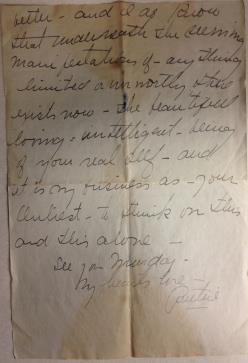 better - and I do know
that underneath the seeming
manifestations of - any thing
limited or unworthy - there
exists now - the beautiful
loving - intelligent - being
of your real self - and
it is my business as - your
to think on this
and this alone -
See you Monday -
My hearts love -